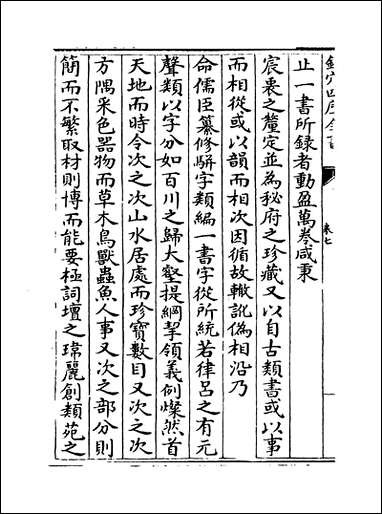 欽定四庫全書
卷七
止一書所録者動盈萬卷咸秉
宸衷之釐定並為秘府之珍藏又以自古類書或以事
而相從或以韻而相次因循故轍訛偽相沿乃
命儒臣纂修駢字類編一書字從所統若律吕之有元
聲類以字分如百川之歸大壑提綱挈領義例燦然首
天地而時令次之次山水居處而珍寶數目又次之次
方隅采色器物而草木鳥獸蟲魚人事又次之部分則
簡而不繁取材則博而能要極詞壇之瑋麗創類苑之